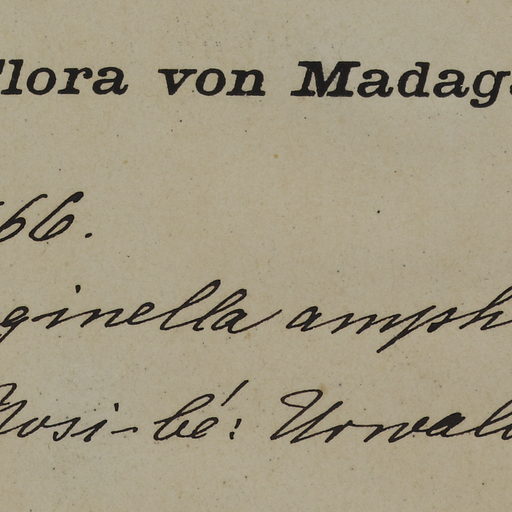 Flora von Madaga
66.
ginella amph
Nosi-bé: Urwal